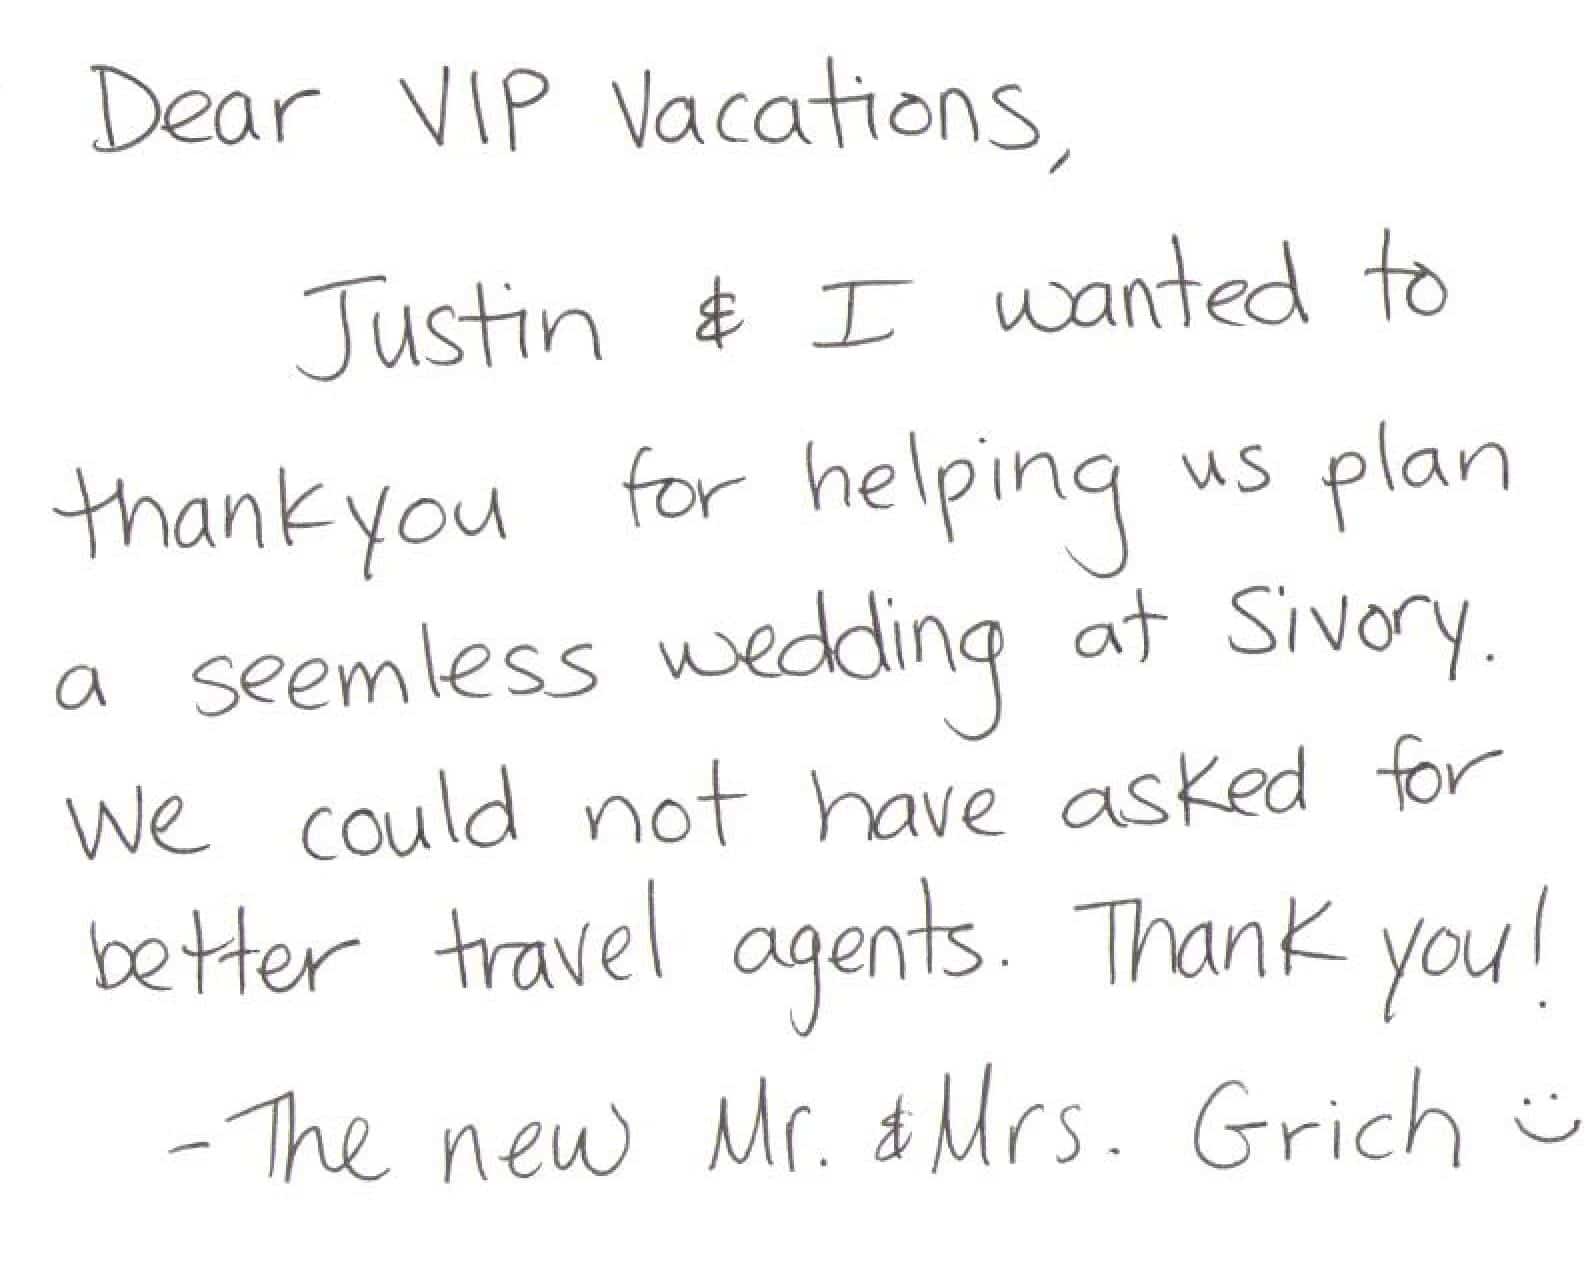 Dear VIP Vacations,
Justin & I wanted to
thankyou for helping us plan
a seemless wedding at Sivory.
We could not have asked for
better travel agents. Thank you!
- The new Mr. & Mrs. Grich :)